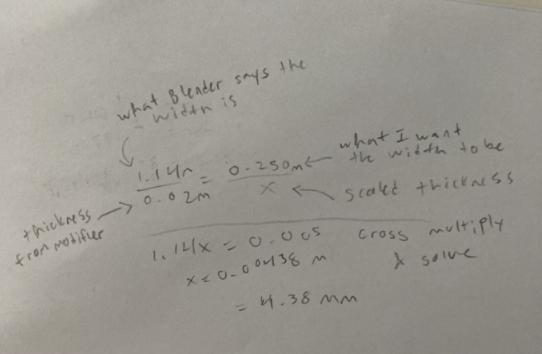 what Blender says the
width is
1.14m = 0.250m
0.02m x
what I want
the width to be
scaled thickness
thickness
from modifier
1.14x = 0.005 cross multiply
& solve
x = 0.00438 m
= 4.38 mm